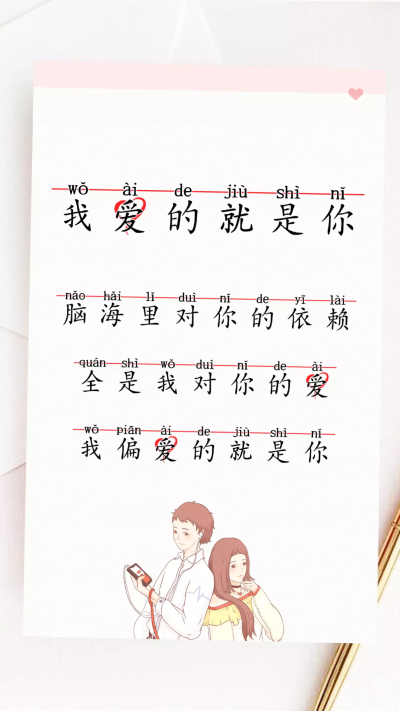 wǒ ài de jiù shì nǐ
我爱的就是你
nǎo hǎi lǐ duì nǐ de yī lài
脑海里对你的依赖
quán shì wǒ duì nǐ de ài
全是我对你的爱
wǒ piān ài de jiù shì nǐ
我偏爱的就是你